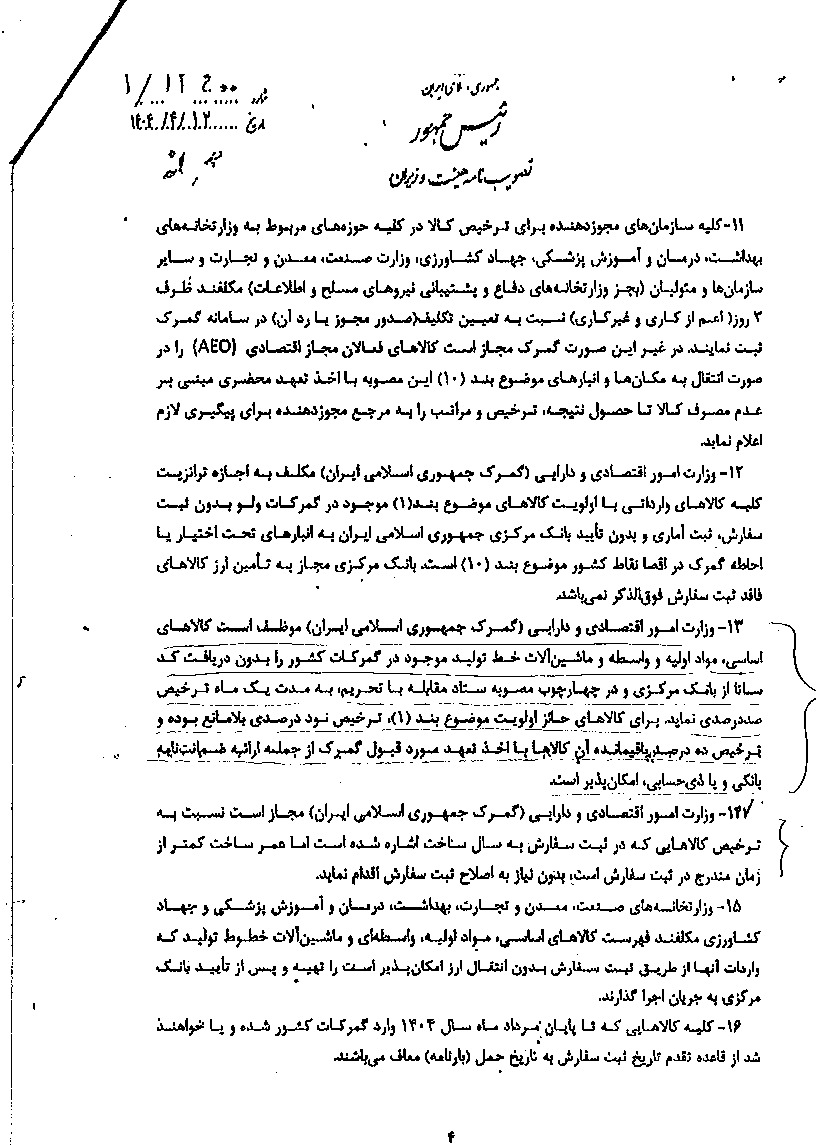 جمهوری اسلامی ایران
رئیس جمهور
تصویب نامه هیئت وزیران
شماره
تاریخ
۱۱- کلیه سازمان‌های مجوزدهنده برای ترخیص کالا در کلیه حوزه‌های مربوط به وزارتخانه‌های
بهداشت، درمان و آموزش پزشکی، جهاد کشاورزی، وزارت صنعت، معدن و تجارت و سایر
سازمان‌ها و متولیان (بجز وزارتخانه‌های دفاع و پشتیبانی نیروهای مسلح و اطلاعات) مکلفند ظرف
۳ روز( اعم از کاری و غیرکاری) نسبت به تعیین تکلیف(صدور مجوز یا رد آن) در سامانه گمرک
ثبت نمایند. در غیر این صورت گمرک مجاز است کالاهای فعالان مجاز اقتصادی (AEO) را در
صورت انتقال به مکان‌ها و انبارهای موضوع بند (۱۰) این مصوبه با اخذ تعهد محضری مبنی بر
عدم مصرف کالا تا حصول نتیجه، ترخیص و مراتب را به مرجع مجوزدهنده برای پیگیری لازم
اعلام نماید.
۱۲- وزارت امور اقتصادی و دارایی (گمرک جمهوری اسلامی ایران) مکلف به اجازه ترانزیت
کلیه کالاهای وارداتی با اولویت کالاهای موضوع بند(۱) موجود در گمرکات ولو بدون ثبت
سفارش، ثبت آماری و بدون تأیید بانک مرکزی جمهوری اسلامی ایران به انبارهای تحت اختیار یا
احاطه گمرک در اقصا نقاط کشور موضوع بند (۱۰) است. بانک مرکزی مجاز به تأمین ارز کالاهای
فاقد ثبت سفارش فوق‌الذکر نمی‌باشد.
۱۳- وزارت امور اقتصادی و دارایی (گمرک جمهوری اسلامی ایران) موظف است کالاهای
اساسی، مواد اولیه و واسطه و ماشین‌آلات خط تولید موجود در گمرکات کشور را بدون دریافت کد
ساتا از بانک مرکزی و در چهارچوب مصوبه ستاد مقابله با تحریم، به مدت یک ماه ترخیص
صددرصدی نماید. برای کالاهای حائز اولویت موضوع بند (۱)، ترخیص نود درصدی بلامانع بوده و
ترخیص ده درصد باقیمانده آن کالاها با اخذ تعهد مورد قبول گمرک از جمله ارائه ضمانت‌نامه
بانکی و یا ذی‌حسابی، امکان‌پذیر است.
۱۴- وزارت امور اقتصادی و دارایی (گمرک جمهوری اسلامی ایران) مجاز است نسبت به
ترخیص کالاهایی که در ثبت سفارش به سال ساخت اشاره شده است اما عمر ساخت کمتر از
زمان مندرج در ثبت سفارش است، بدون نیاز به اصلاح ثبت سفارش اقدام نماید.
۱۵- وزارتخانه‌های صنعت، معدن و تجارت، بهداشت، درمان و آموزش پزشکی و جهاد
کشاورزی مکلفند فهرست کالاهای اساسی، مواد اولیه، واسطه‌ای و ماشین‌آلات خطوط تولید که
واردات آنها از طریق ثبت سفارش بدون انتقال ارز امکان‌پذیر است را تهیه و پس از تأیید بانک
مرکزی به جریان اجرا گذارند.
۱۶- کلیه کالاهایی که تا پایان مرداد ماه سال ۱۴۰۴ وارد گمرکات کشور شده و یا خواهند
شد از قاعده تقدم تاریخ ثبت سفارش به تاریخ حمل (بارنامه) معاف می‌باشند.
۴